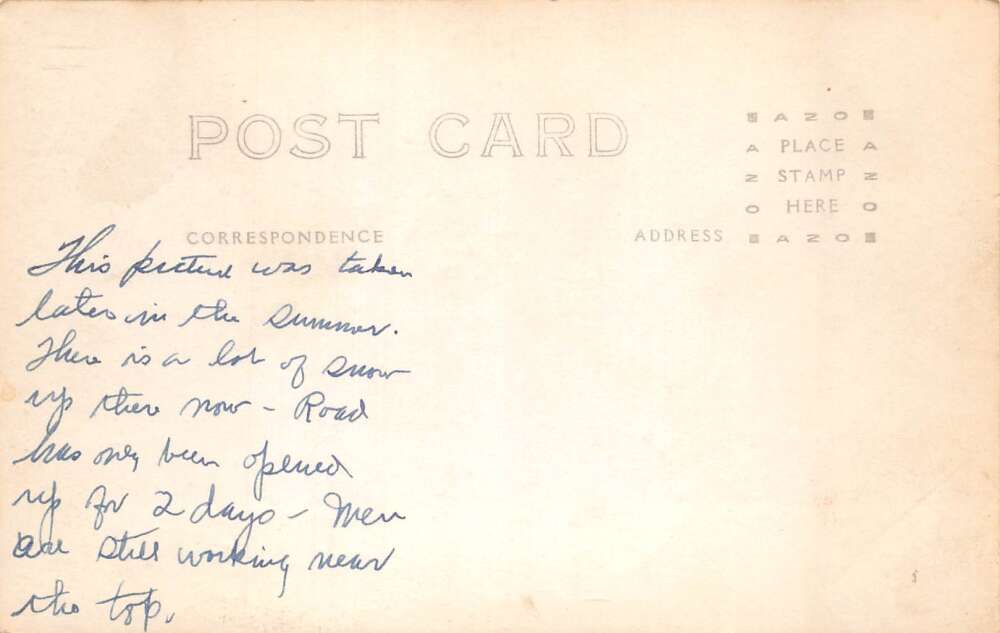 POST CARD
AZO
A PLACE A
Z STAMP Z
O HERE O
AZO
CORRESPONDENCE
ADDRESS
This picture was taken
later in the summer.
There is a lot of snow
up there now - Road
has only been opened
up for 2 days - Men
are still working near
the top.